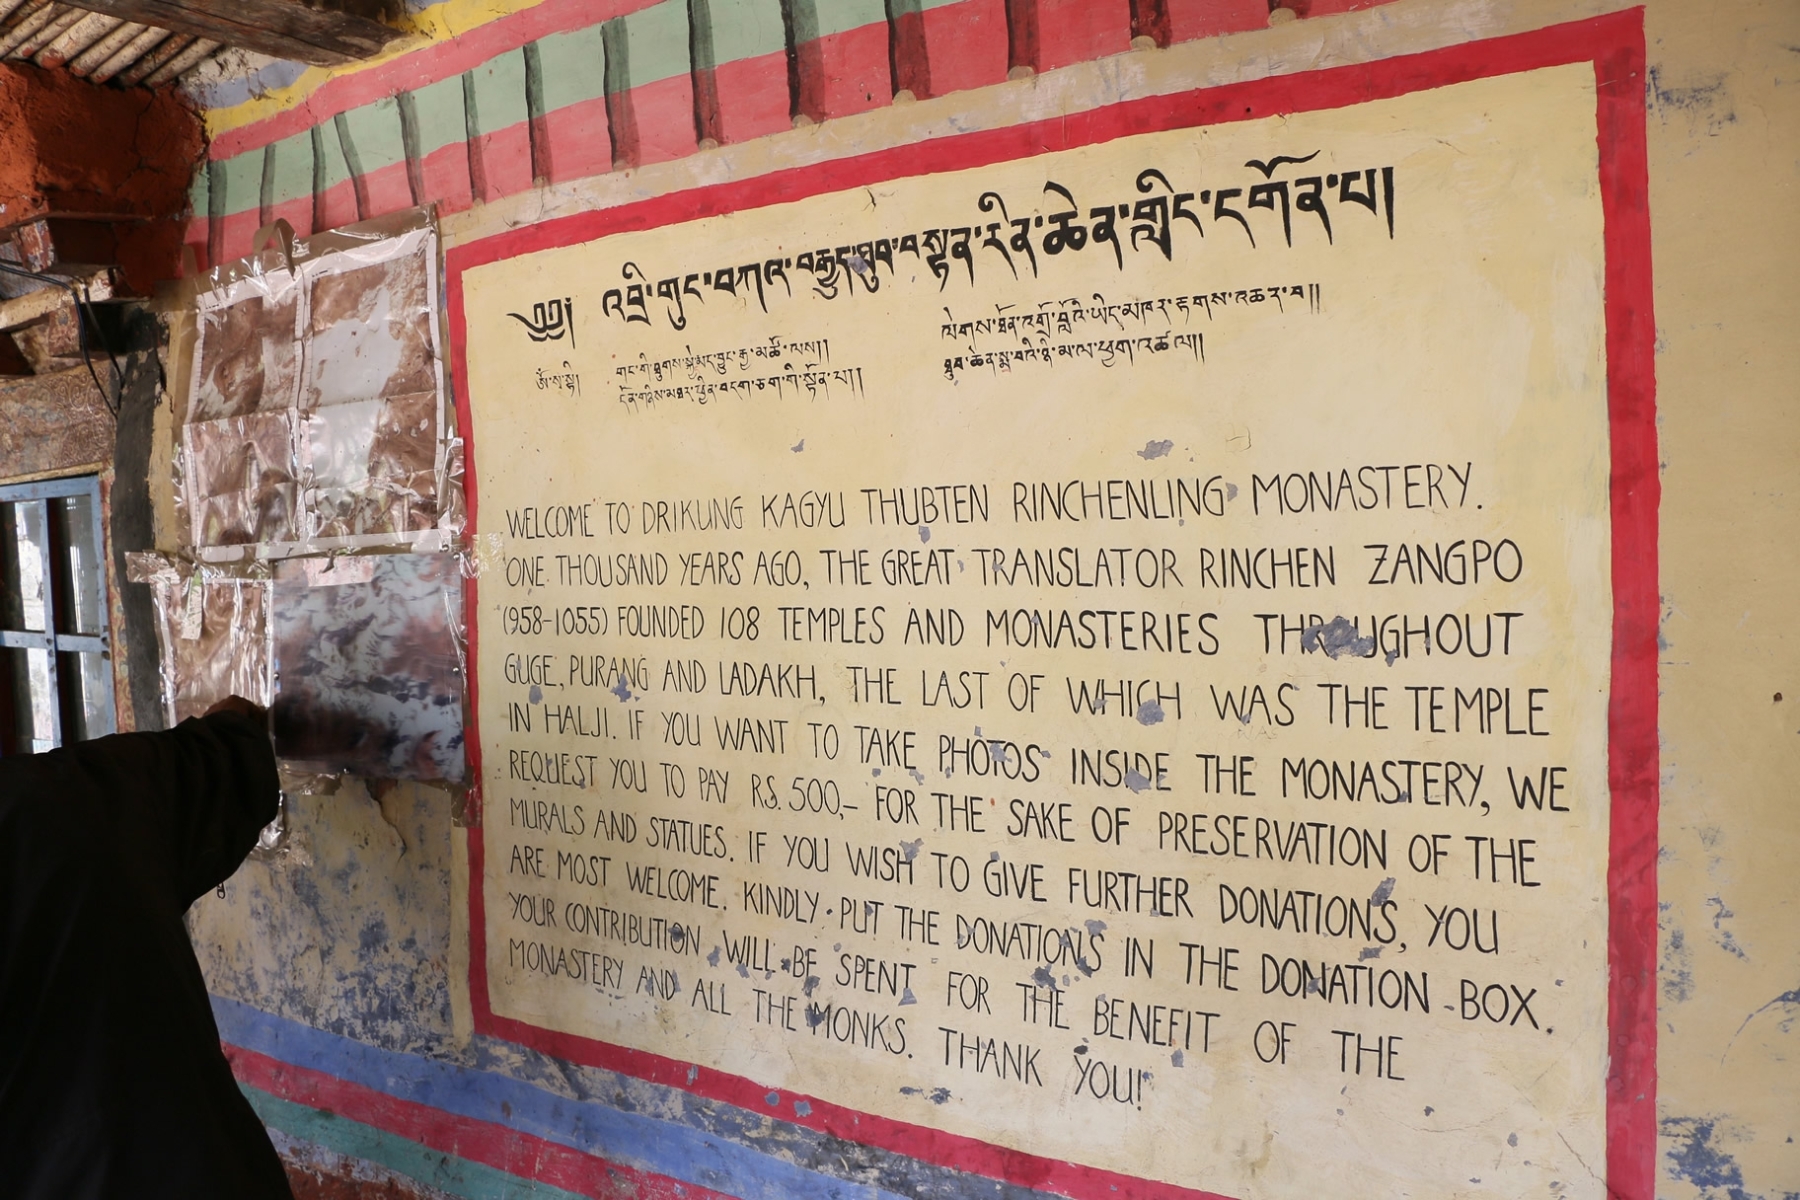 ༄༅། འབྲི་གུང་བཀའ་བརྒྱུད་ཐུབ་བསྟན་རིན་ཆེན་གླིང་ངགོན་པ།
ཨོཾ་ས་སྟི།
WELCOME TO DRIKUNG KAGYU THUBTEN RINCHENLING MONASTERY.
ONE THOUSAND YEARS AGO, THE GREAT TRANSLATOR RINCHEN ZANGPO
(958-1055) FOUNDED 108 TEMPLES AND MONASTERIES THROUGHOUT
GUGE, PURANG AND LADAKH, THE LAST OF WHICH WAS THE TEMPLE
IN HALJI. IF YOU WANT TO TAKE PHOTOS INSIDE THE MONASTERY, WE
REQUEST YOU TO PAY RS. 500,- FOR THE SAKE OF PRESERVATION OF THE
MURALS AND STATUES. IF YOU WISH TO GIVE FURTHER DONATIONS, YOU
ARE MOST WELCOME. KINDLY PUT THE DONATIONS IN THE DONATION-BOX.
YOUR CONTRIBUTION WILL BE SPENT FOR THE BENEFIT OF THE
MONASTERY AND ALL THE MONKS. THANK YOU!